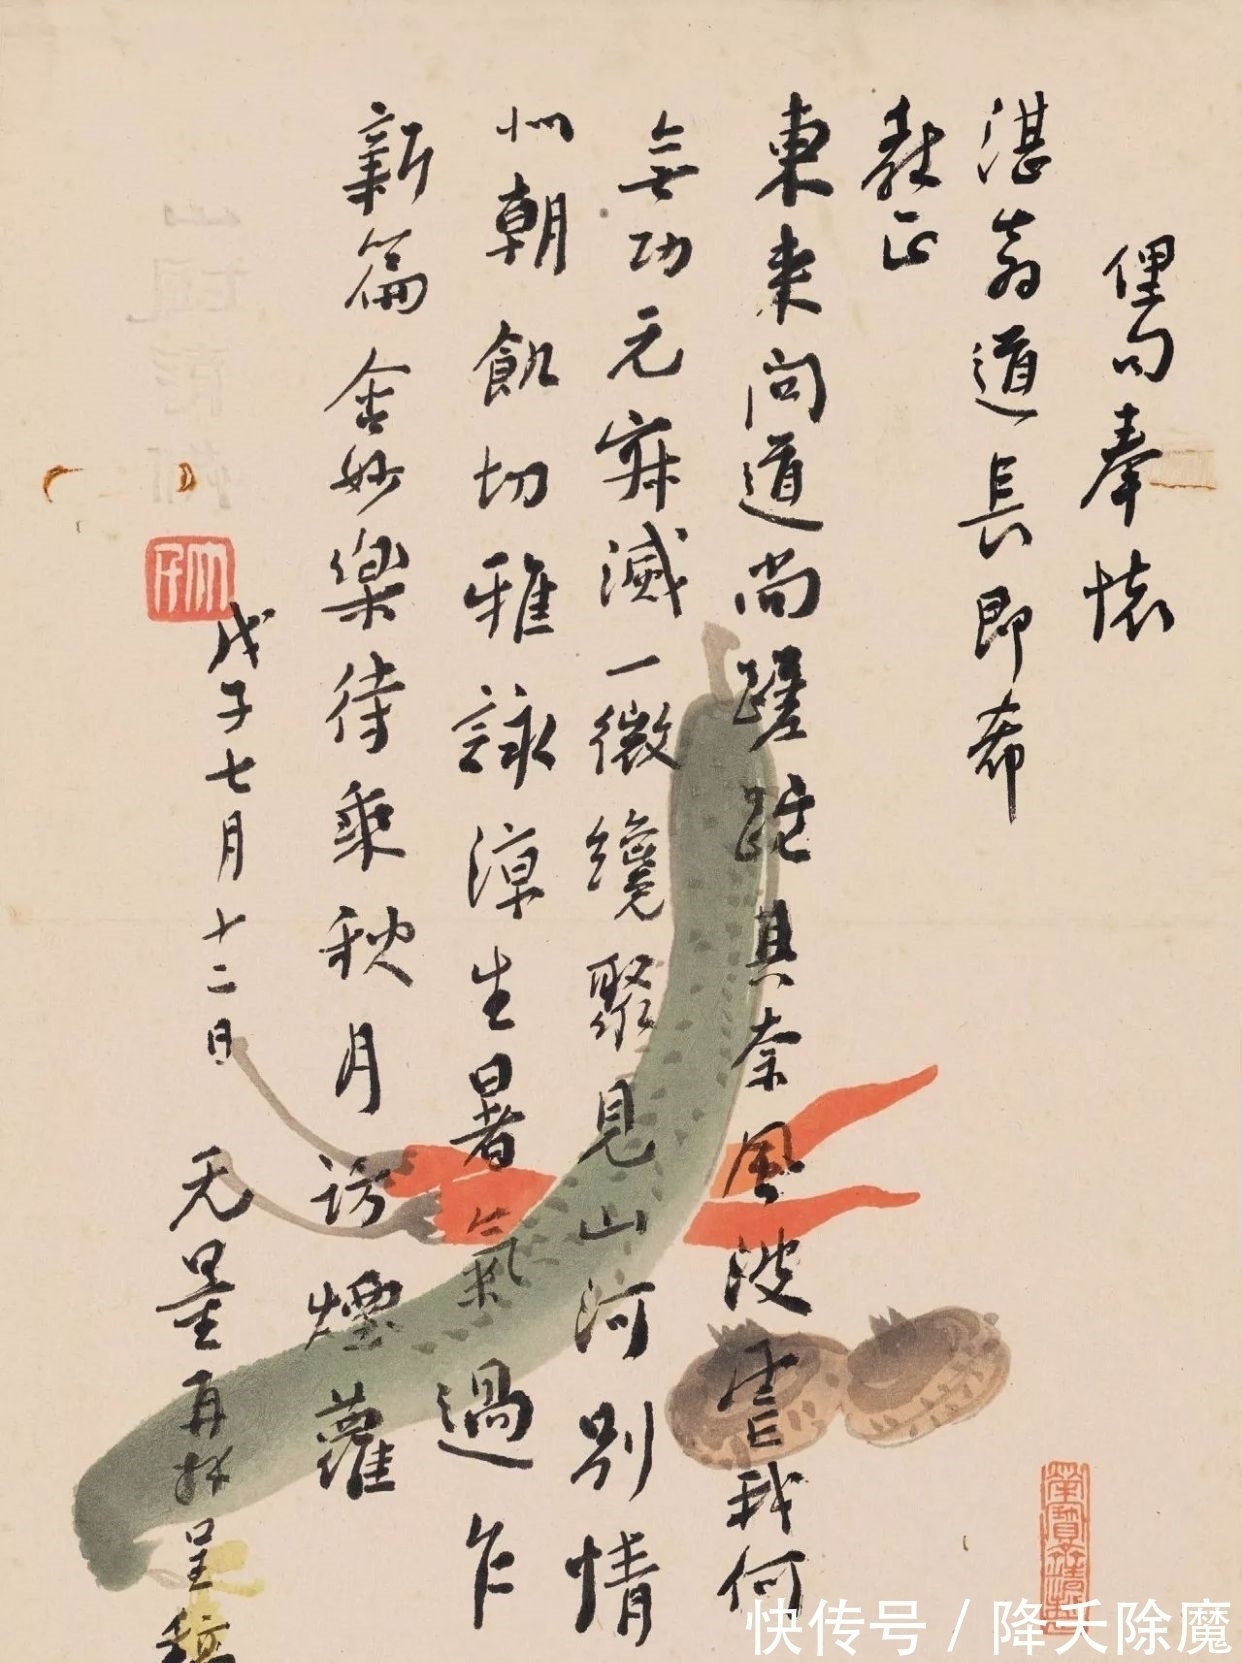 俚句奉懷
湛翁道長即希
教正
東来问道尚蹉跎其奈風波虐我何
無功元寂滅一微纔聚見山河别情
似朝飢切雅詠涼生暑氣過乍
新篇含妙樂待乘秋月訪煙蘿
戊子七月十二日 无量再拜呈稿
快传号 / 降夭除魔